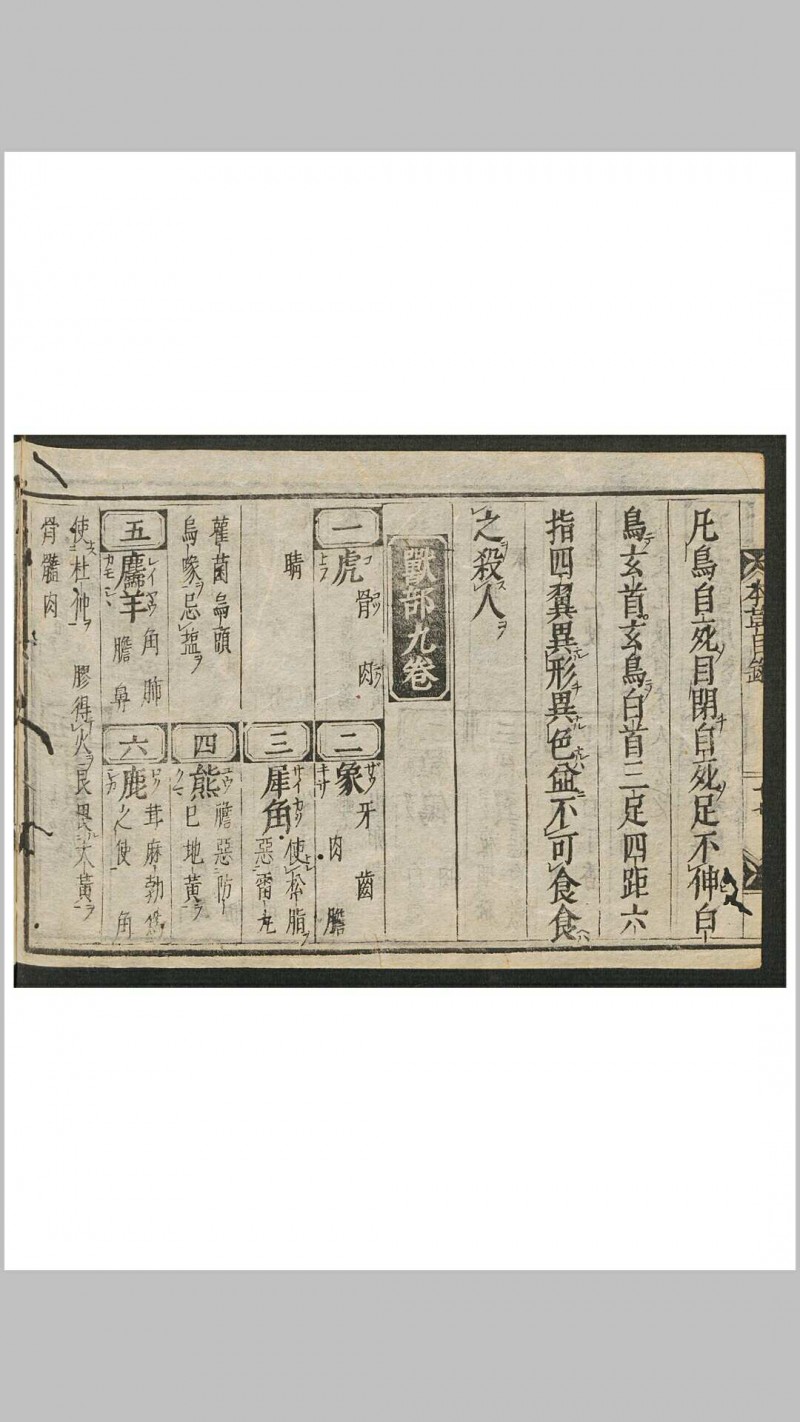 本草目錄
凡鳥自死目閉自死足不伸白
鳥玄首玄鳥白首三足四距六
指四翼異形異色並不可食食
之殺人
獸部九卷
一
虎 骨 肉
睛
二
象 牙 肉 齒 膽
三
犀角 使松脂 惡雷丸
雚菌烏頭
烏喙忌塩
四
熊 膽惡防
已地黃
五
麢羊 角 肺 膽 鼻
六
鹿 茸麻勃為
之使 角
使杜仲 膠得火良畏大黃
骨 髓 肉